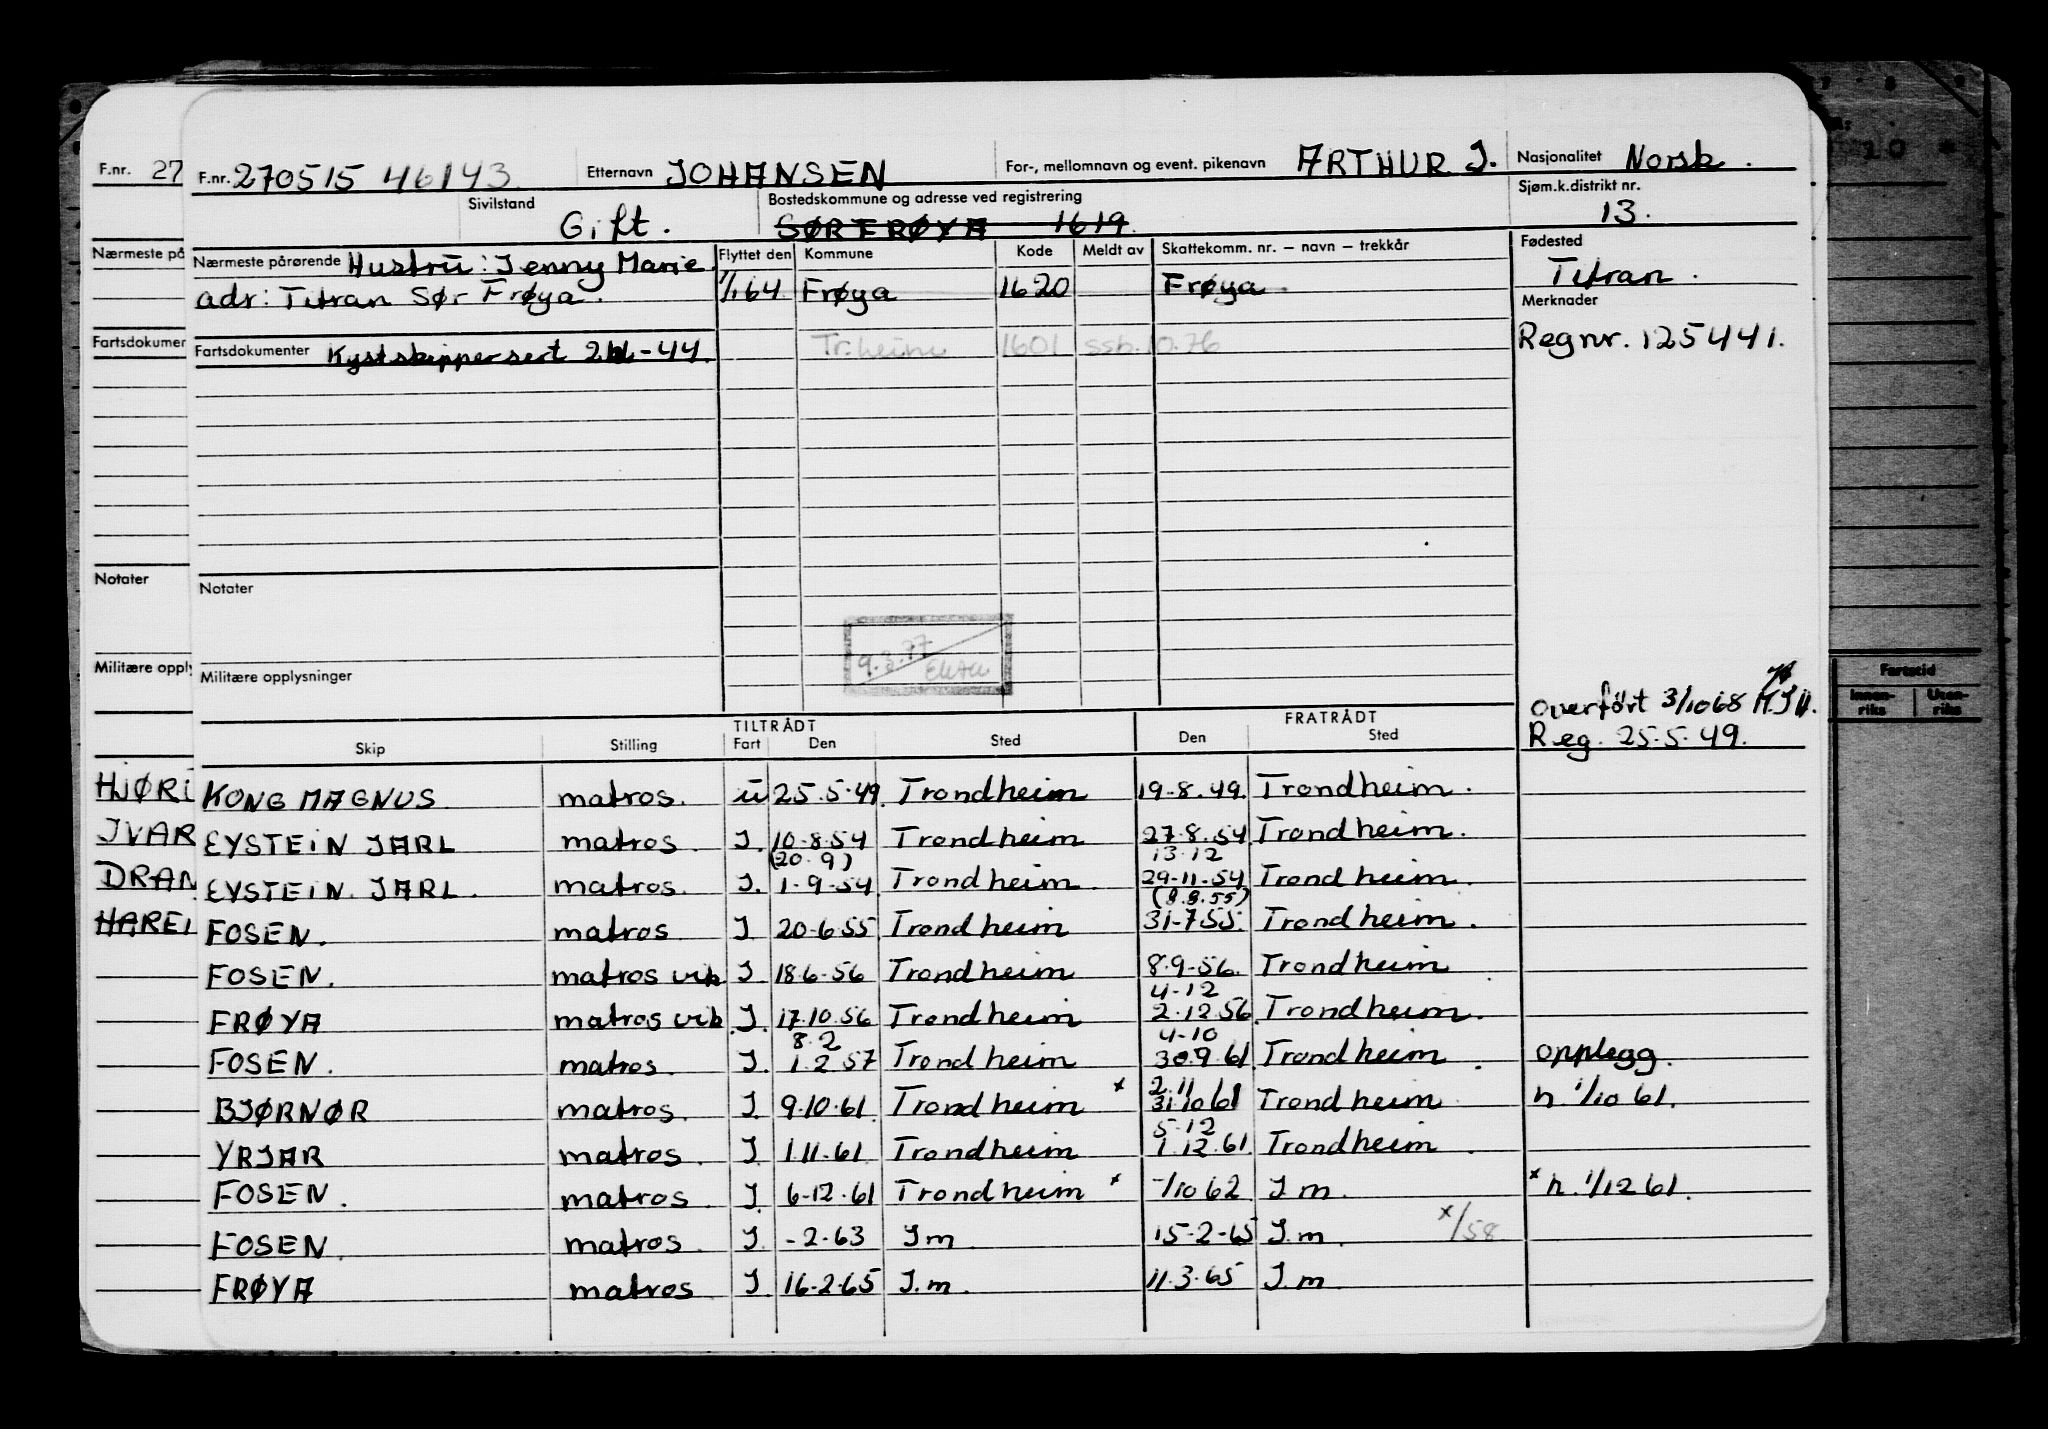 F.nr. 27
F.nr. 270515 46143 Etternavn JOHANSEN For-, mellomnavn og event. pikenavn ARTHUR J. Nasjonalitet Norsk.
Sivilstand Gift. Bostedskommune og adresse ved registrering SØR FRØYA 1619. Sjøm.k.distrikt nr. 13.
Nærmeste på
Nærmeste pårørende Hustru: Jenny Marie. Flyttet den Kommune Kode Meldt av Skattekomm. nr. – navn – trekkår Fødested Titran.
adr: Titran Sør Frøya. 1/1 64 Frøya 1620 Frøya Merknader
Fartsdokumen
Fartsdokumenter Kystskippersert 44. Tr.heim 1601 ssb. 10.76 Regnr. 125441.
Notater
Notater
9.3.77
Militære opply
Militære opplysninger
overført 3/10 68
Reg. 25.5.49.
TILTRÅDT FRATRÅDT
Skip Stilling Fart Den Sted Den Sted
Fartstid
Innen-riks Uten-riks
HJØR
KONG MAGNUS matros. ū 25.5.49. Trondheim 19.8.49. Trondheim.
JVAR
EYSTEIN JARL matros. J. 10-8-54 Trondheim 27.8.54 Trondheim.
(20.9) 13.12
DRAN
EYSTEIN. JARL. matros. J. 1-9-54 Trondheim 29-11-54 Trondheim.
(8.8.55)
HAREI
FOSEN. matros J 20-6-55 Trondheim 31-7-55. Trondheim.
FOSEN. matros vik J 18.6-56 Trondheim 8.9-56. Trondheim
4-12
FRØYA matros vik J. 17.10.56 Trondheim 2.12.56 Trondheim.
8.2 4-10
FOSEN. matros. J. 1.2 57 Trondheim 30.9.61 Trondheim. opplegg.
2.11
BJØRNØR matros. J. 9.10.61. Trondheim x 31.10 61 Trondheim h 1/10 61.
5-12
YRJAR matros. J 1.11.61. Trondheim 1.12.61. Trondheim.
FOSEN. matros. J. 6-12.61 Trondheim x -/10 62 J m. x h. 1/12 61.
FOSEN. matros. J. -2-63 J m. 15-2-65 J.m. x/58
FRØYA matros J. 16-2-65 J.m. 11.3.65 J m